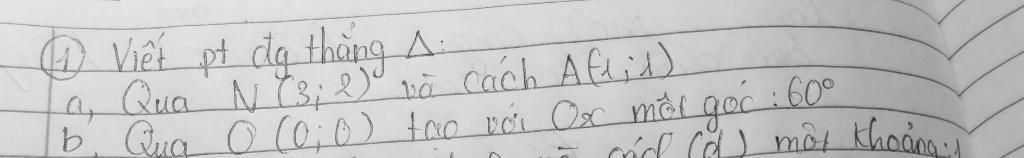 ① Viết pt đg thẳng Δ:
a, Qua N (3; 2) và cách A(1; 1)
b, Qua O (0; 0) tạo với Ox một góc: 60°
cách (d) một khoảng: